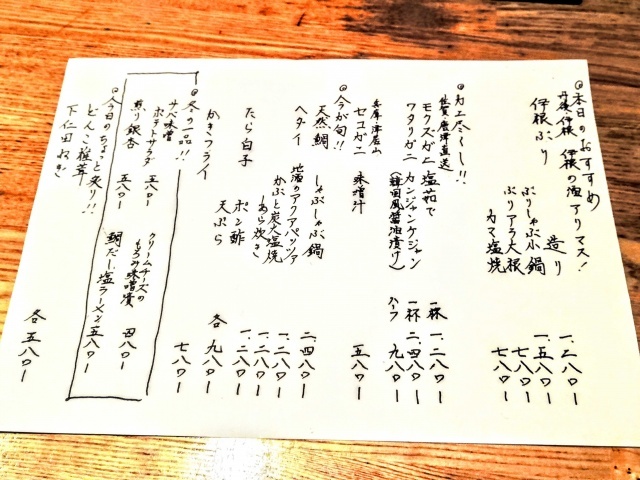 ◎本日のおすすめ
丹後伊根 伊根の漁 アリマス!
伊根ぶり 造り 一、二八〇ー
ぶりしゃぶ小鍋 一、五八〇ー
ぶりアラ大根 七八〇ー
カマ塩焼 七八〇ー
◎カニ尽くし!!
佐賀・唐津直送
モクズガニ 塩茹で 一杯 一、二八〇ー
ワタリガニ カンジャンケジャン 一杯 二、四八〇ー
(韓国風醤油漬け) ハーフ 九八〇ー
兵庫・津居山
セコガニ 味噌汁 五八〇ー
◎今が旬!!
天然鯛 しゃぶしゃぶ鍋 二、四八〇ー
ヘダイ 地酒のアクアパッツァ 一、二八〇ー
かぶと炭火塩焼 一、二八〇ー
あら炊き 一、二八〇ー
たら白子 ポン酢
天ぷら 各 九八〇ー
かきフライ 七八〇ー
◎冬の一品!!
サバ味噌
ポテトサラダ 五八〇ー
クリームチーズの
もろみ味噌漬 四八〇ー
煎り銀杏 五八〇ー
鯛だし塩ラーメン 五八〇ー
◎今日のちょっと炙り!!
どんこ椎茸
下仁田ねぎ 各 五八〇ー